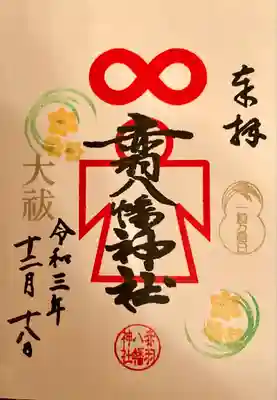 奉拝
赤羽八幡神社
一粒万倍日
大祓
令和三年
十二月 十八日
赤羽
八幡
神社